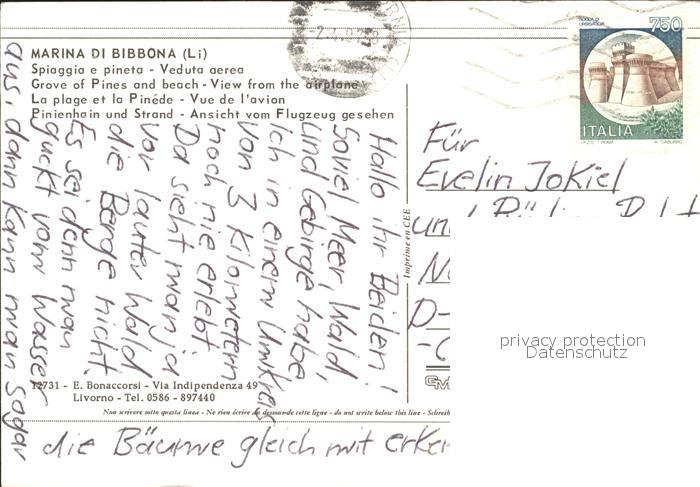 MARINA DI BIBBONA (Li)
Spiaggia e pineta - Veduta aerea
Grove of Pines and beach - View from the airplane
La plage et la Pinéde - Vue de l'avion
Pinienhain und Strand - Ansicht vom Flugzeug gesehen
Hallo ihr Beiden!
Soviel Meer, Wald,
und Gebirge habe
ich in einem Umkreis
von 3 Kilometern
noch nie erlebt.
Da sieht man ja
vor lauter Wald
die Berge nicht.
Es sei denn man
guckt vom Wasser
aus, dann kann man sogar
die Bäume gleich mit erken
750
ITALIA
Für
Evelin Jokiel
un
N
D-
Imprime en CEE
privacy protection
Datenschutz
12731 - E. Bonaccorsi - Via Indipendenza 49
Livorno - Tel. 0586 - 897440
Non scrivere sotto questa linea - Ne rien écrire au dessous de cette ligne - do not write below this line - Schreib